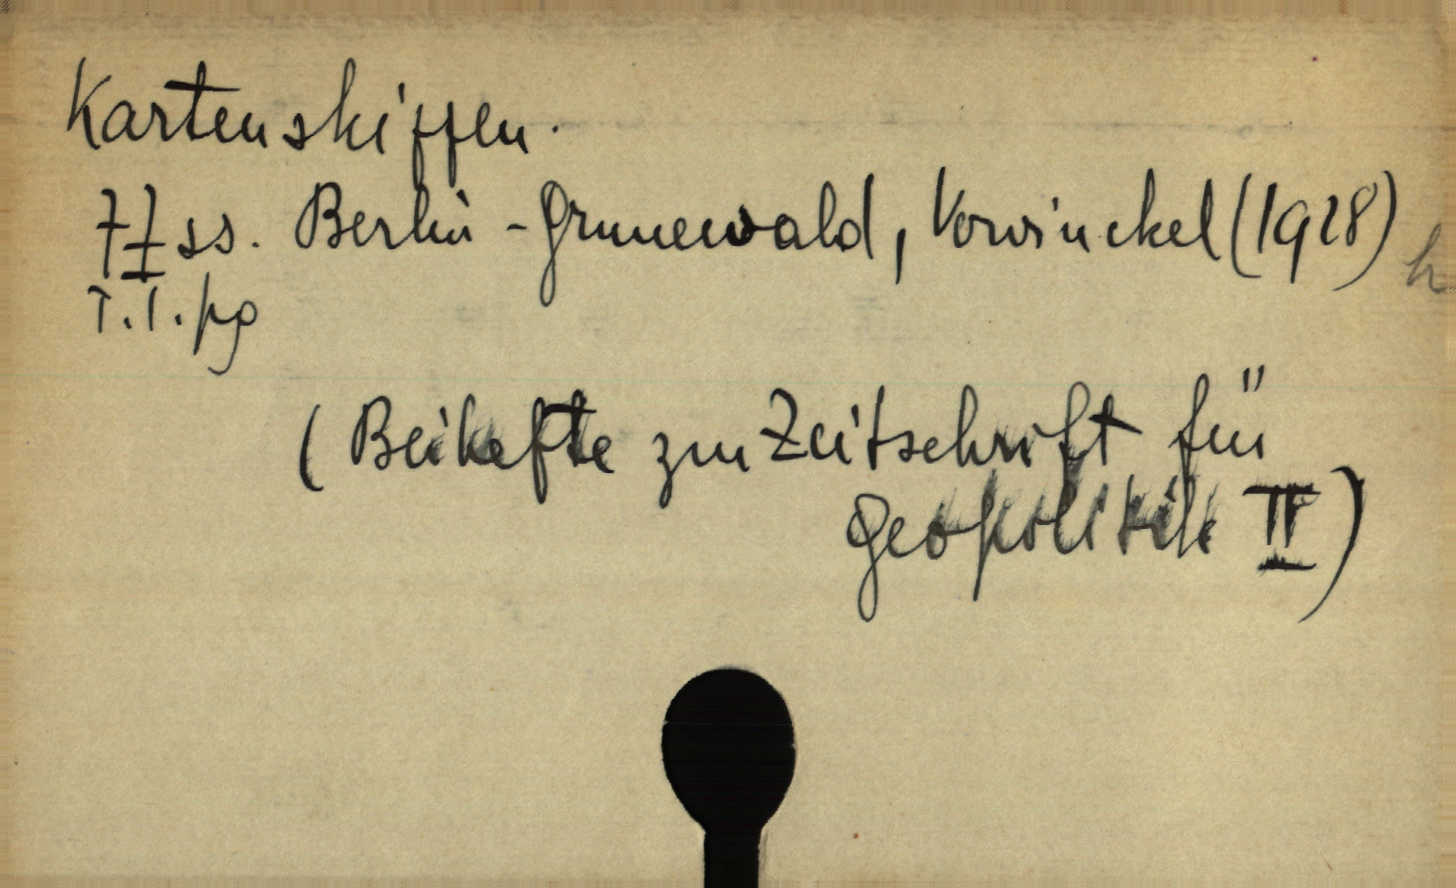 Kartenskizzen.
77 ss. Berlin-Grunewald, Vowinckel (1928)
T.I. pg
(Beihefte zur Zeitschrift für
Geopolitik II)